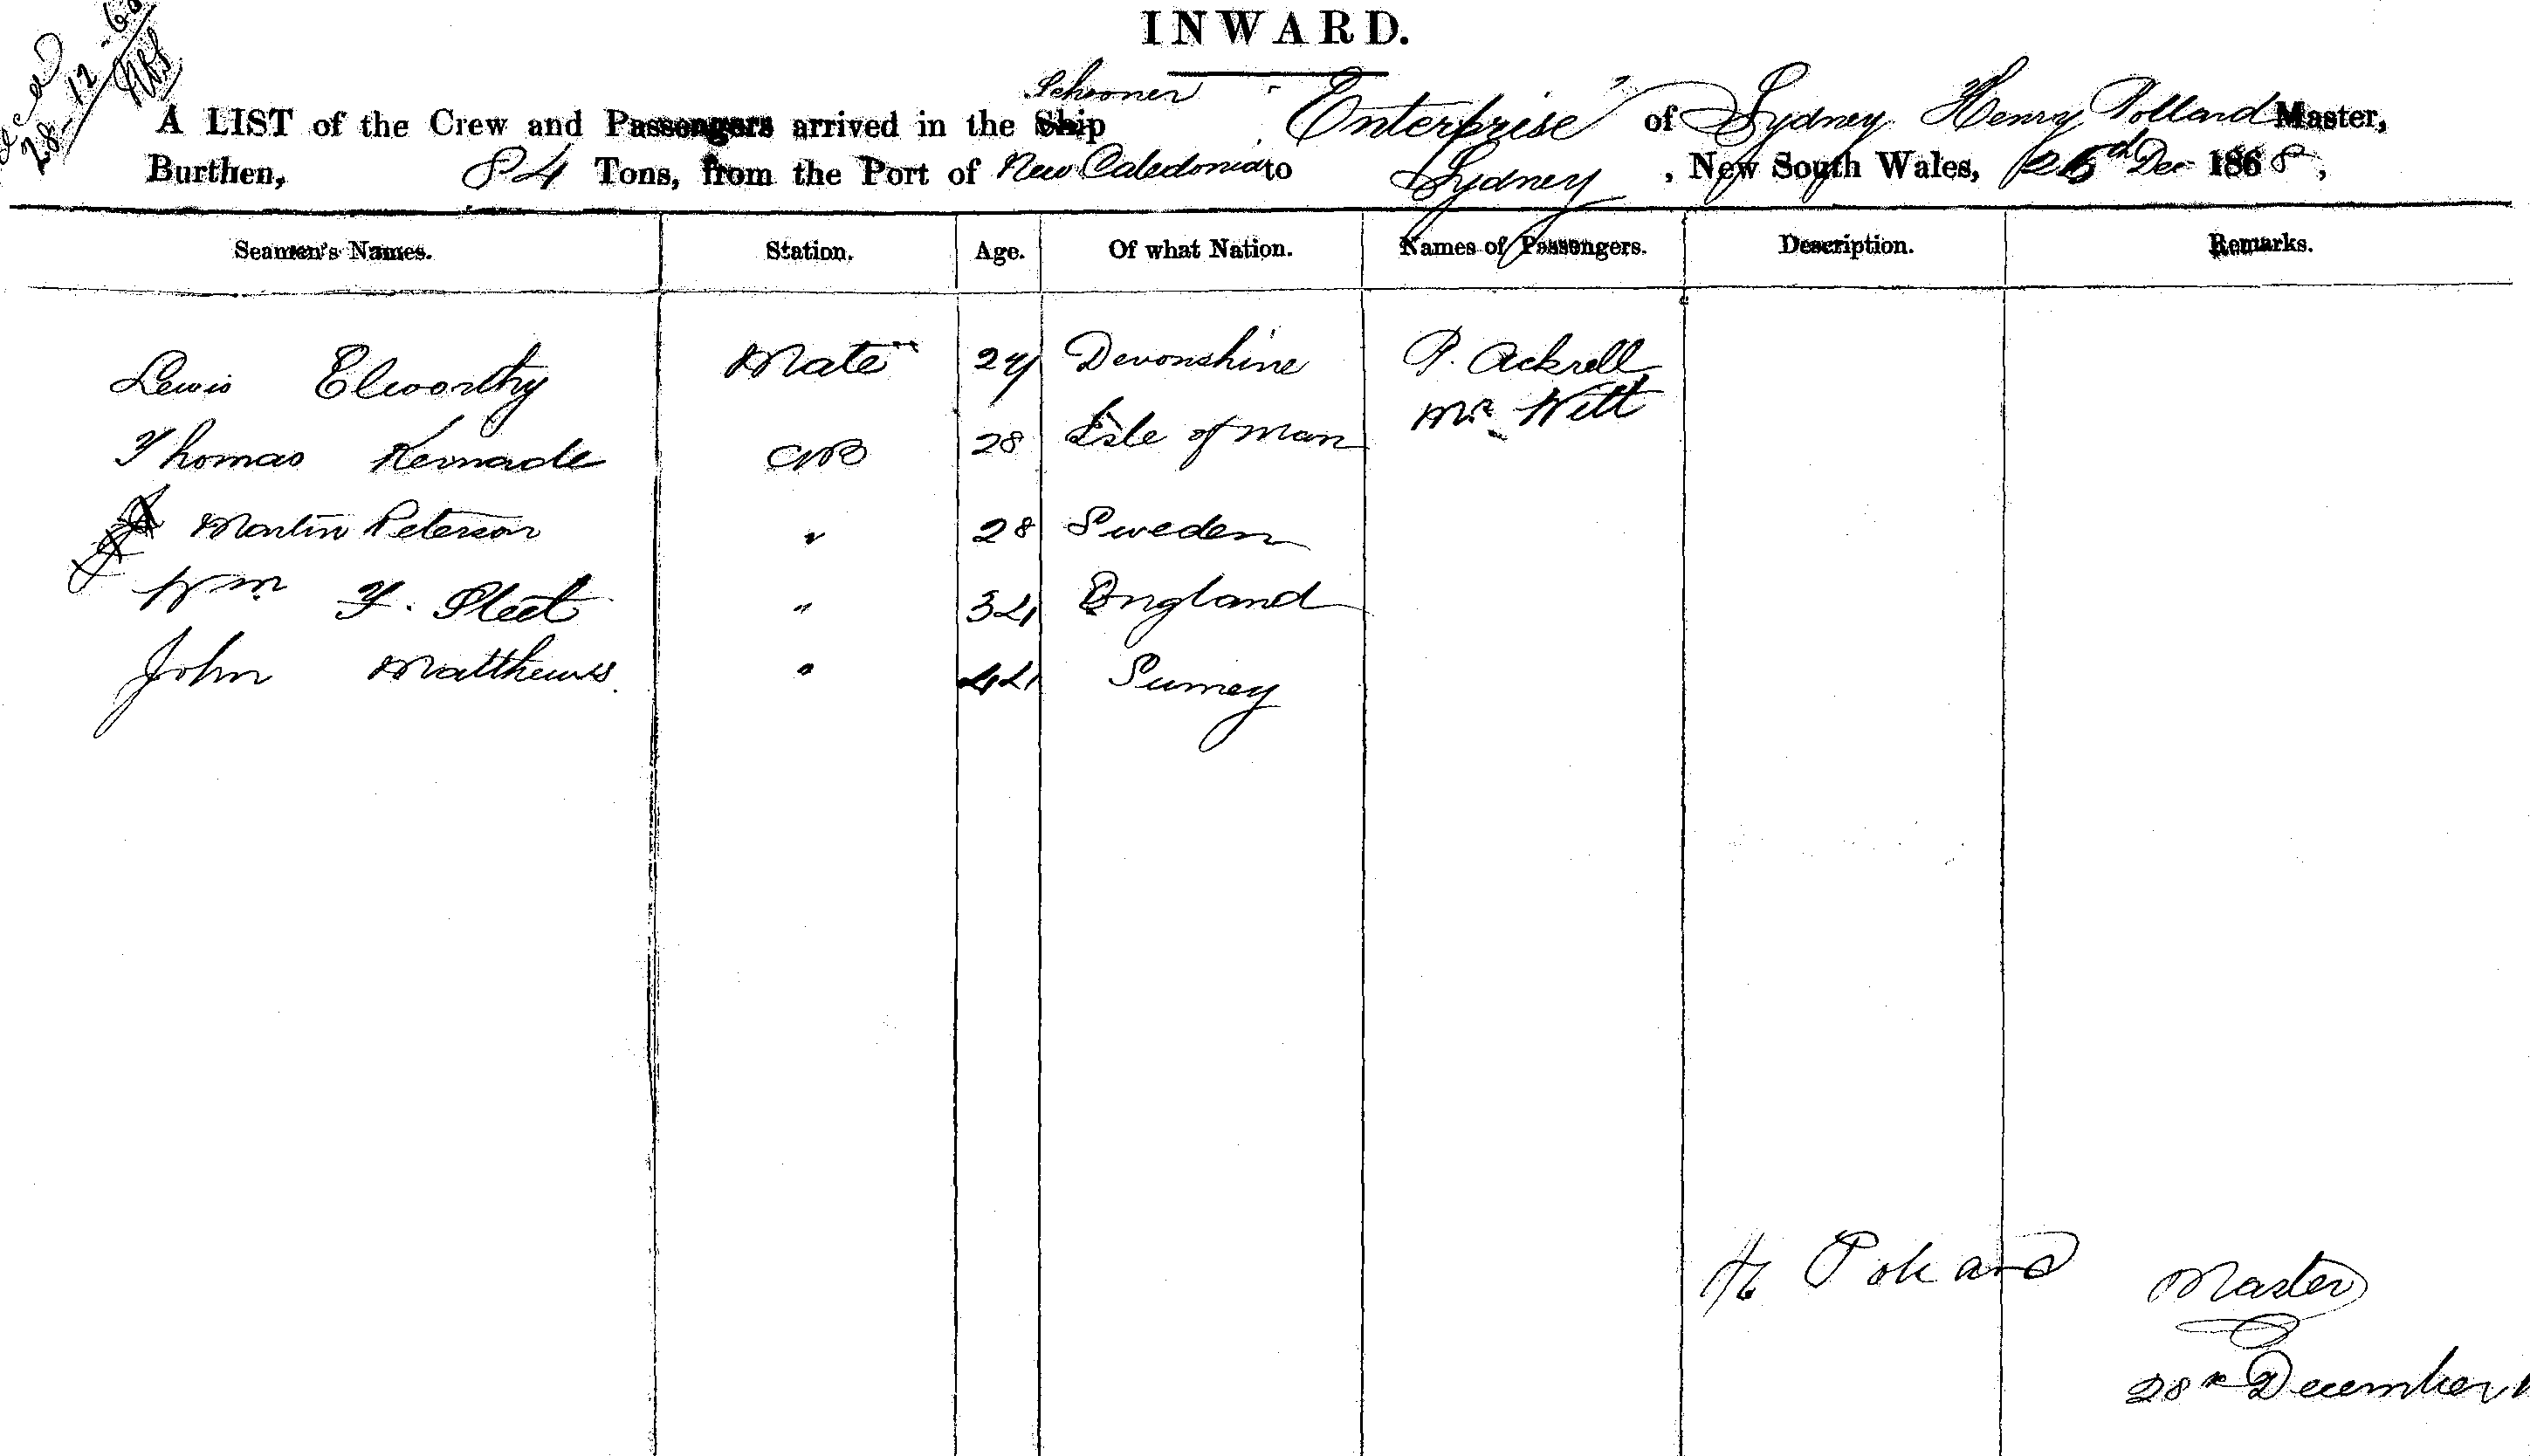 28-12-68
INWARD.
Schooner
A LIST of the Crew and Passengers arrived in the Ship "Enterprise" of Sydney Henry Polland Master,
Burthen, 84 Tons, from the Port of New Caledonia to Sydney, New South Wales, Dec 1868,
Seamen's Names. Station. Age. Of what Nation. Names of Passengers. Description. Remarks.
Lewis Elworthy Mate Devonshire P. Ackrell
Mr. Witt
Thomas 28 Isle of Man
Martin Peterson " 28 Sweden
Wm " 34 England
John Matthews " 44 Surrey
H. Polland Master
28th December